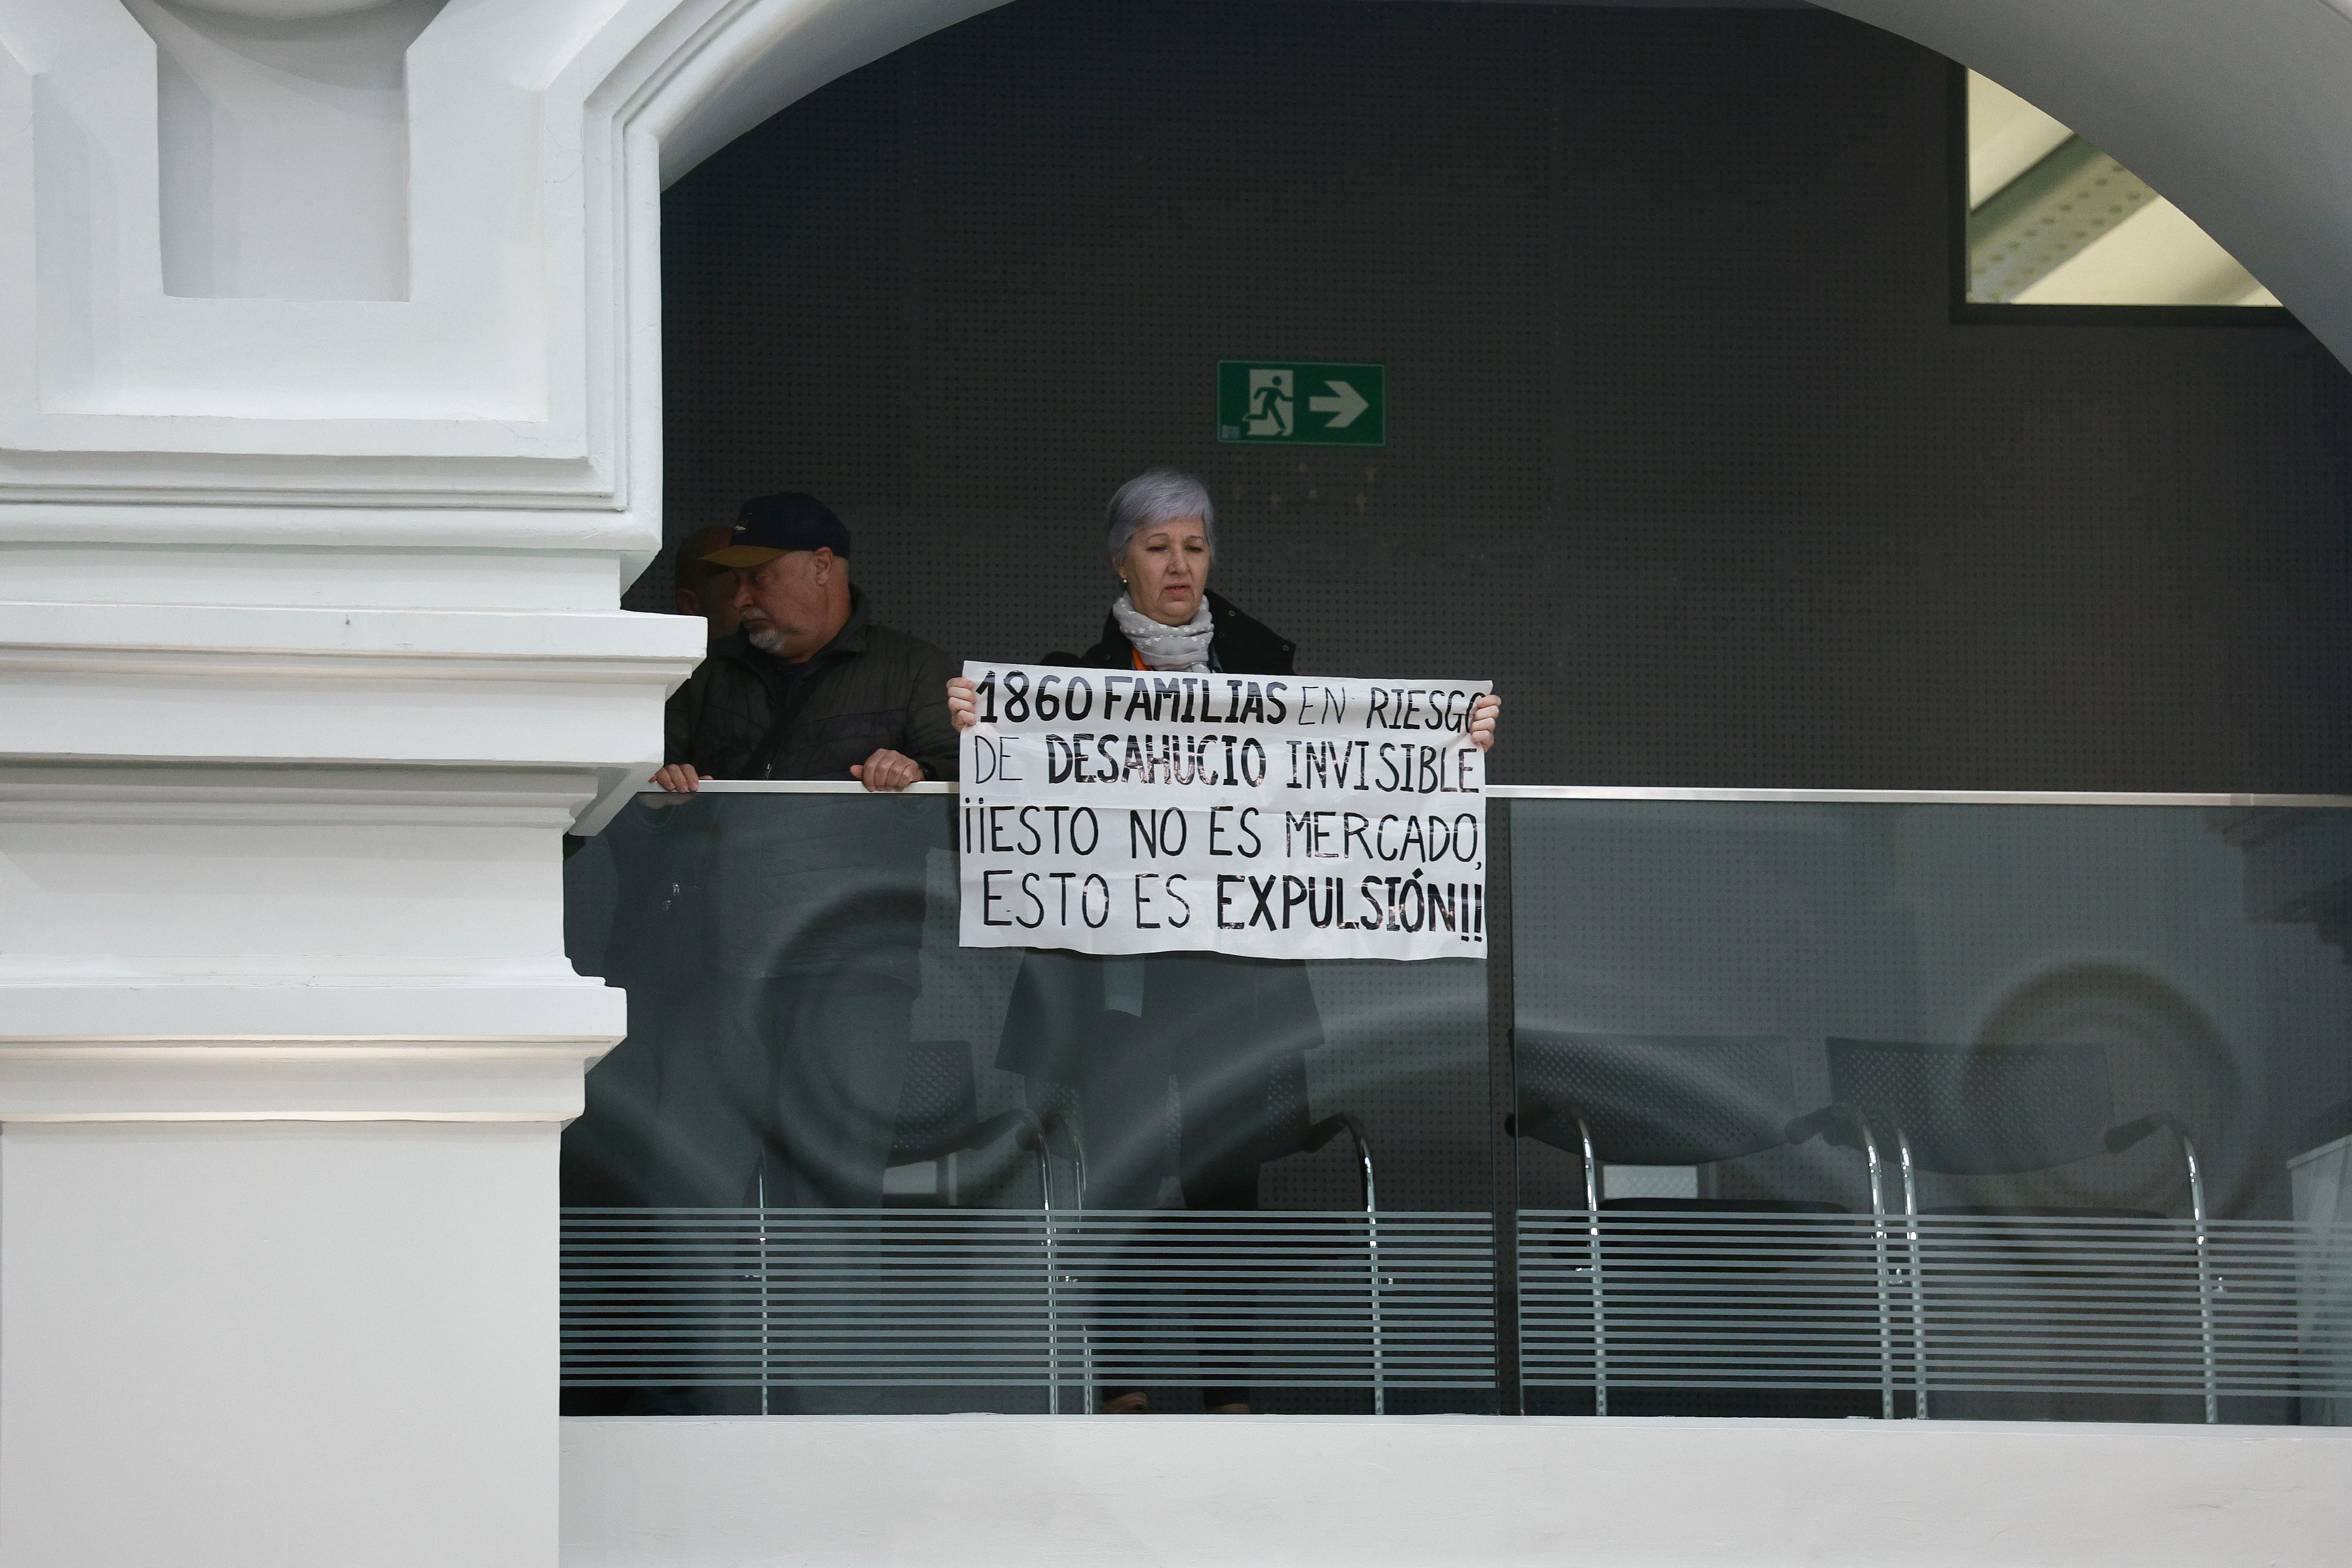 1860 FAMILIAS EN RIESGO
DE DESAHUCIO INVISIBLE
¡¡ESTO NO ES MERCADO,
ESTO ES EXPULSIÓN!!